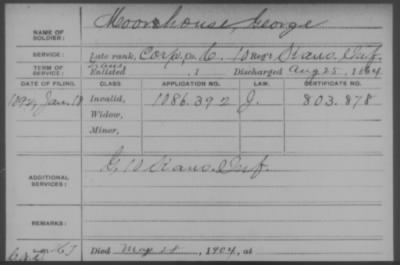 NAME OF SOLDIER: Moorehouse, George
SERVICE: Late rank, Corp. Co. C, 10 Reg't Kans. Inf.
TERM OF SERVICE: Enlisted , 1 Discharged Aug 25, 1864
DATE OF FILING. CLASS. APPLICATION NO. LAW. CERTIFICATE NO.
Jan. 18 Invalid, 1086.392 J. 803.878
Widow,
Minor,
ADDITIONAL SERVICES: G 10 Kans. Inf.
REMARKS:
Died May 28, 1904, at